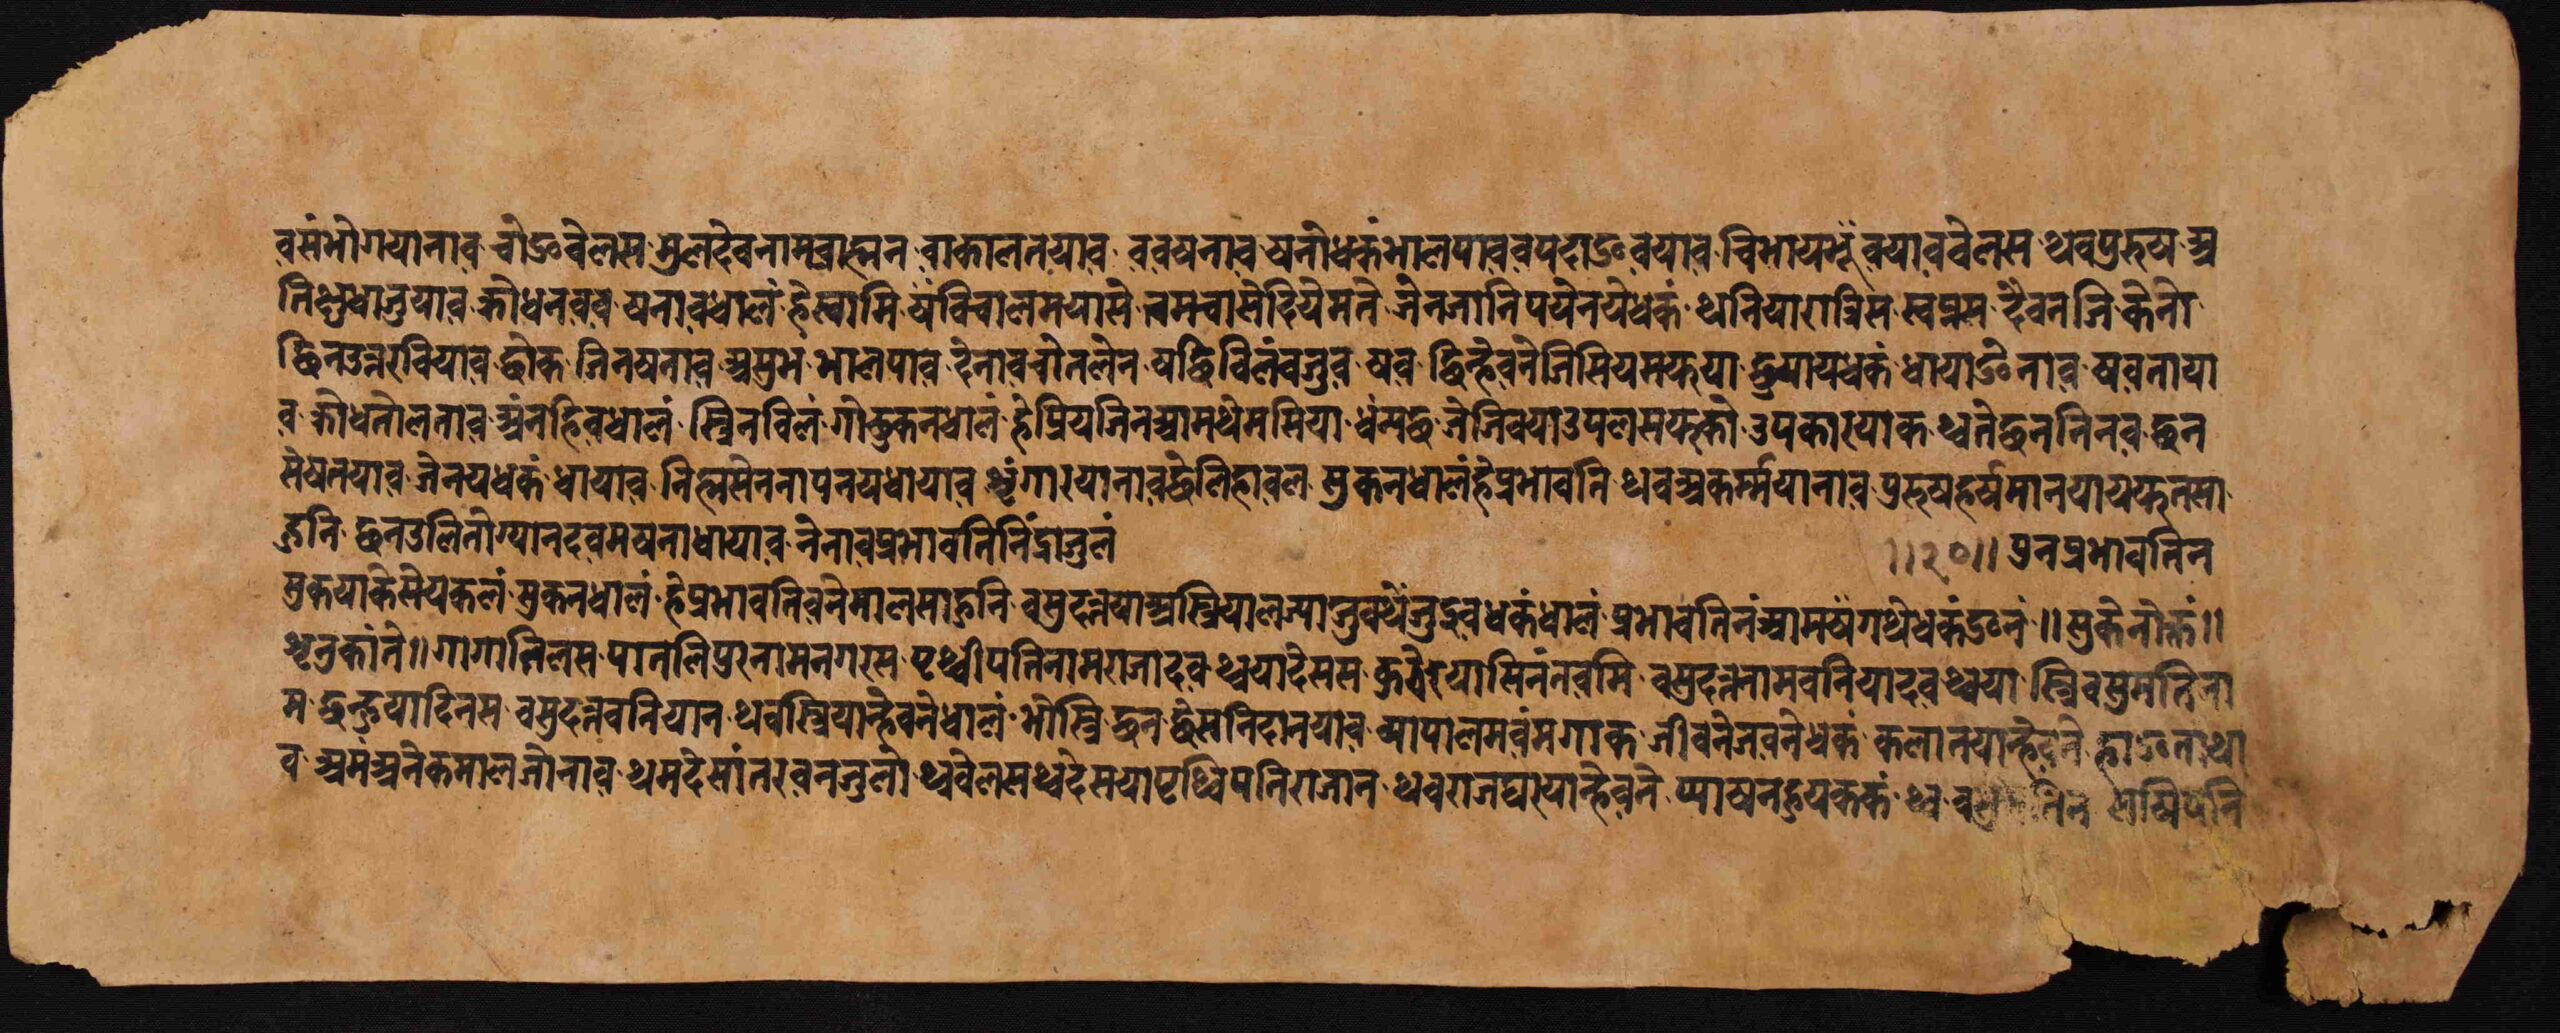 वसंभोगयानाव चोङवेलस मुलदेवनामब्राह्मन वाकालतयाव ववषनाव षनोधकंभालपाववपदाङवयाव चिभायभूं वयाववेलस थवपुरुष अ
तिक्षुधातुयाव क्रोधनवव षनावधालं हेस्वामि थ्यंविचालमयासे त्वमचासेदियेमते जेनजानिपयेनयेधकं थनियारात्रिस स्वप्नस दैवनजि केनो
छिनउत्तरवियाव छोक जिनषनाव असुभ भालपाव देनावचोनलेन षछिविलंवजुव षव छिन्हेवनेजिसियमफया छुयायधकं धायाङेनाव षवताया
व क्रोधतोलताव अंनहिवधालं स्त्रिनविलं गोछुकनधालं हेप्रियजिनआमथेमसिया धंन्यछ जेजिवया उपलसफको उपकारयाक थ्वतेछननिनव छन
सेषतयाव जेनयधकं धायाव निह्मसेननापनयधायाव शृंगारयानावछेलिहावल सुकनधालंहेप्रभावति थवअकर्म्मयानाव पुरुषहर्षमानयायफतसा
हुनि छनउलितोग्यानदवमषनाधायाव नेनावप्रभावतिनिंद्राजुलं ॥२०॥ पुनप्रभावतिन
सुकयाकेसेयकलं सुकनधालं हेप्रभावतिवनेमालसाहुनि वसुदत्तयाअस्त्रियालज्याजुवथेंजुइवधकंधालं प्रभावतिनंआमथ्यंगथेधकंङनं ॥ सुकेनोक्तं ॥
शृनुकांते ॥ गागातिलस पातलिपुरनामनगरस पृथ्वीपतिनामराजादव थ्वयादेसस वसुदत्तनामवनियादव थ्वया स्त्रिवसुमतिना
म छन्हुयादिनस वसुदत्तवनियान थवस्त्रियान्हेवनेधालं भोस्त्रि छन छेसनिदानयाव व्यापालमवंमगाक जीवनेजवनेधकं कलातयान्हेवने ह्लाङतथा
व अमंअनेकमालजोनाव थमदेसांतरवनजुलो थ्ववेलसथ्वदेसयापृथ्विपतिराजान थवराजघरयान्हेवने प्याषनहुयकतकं थ्व